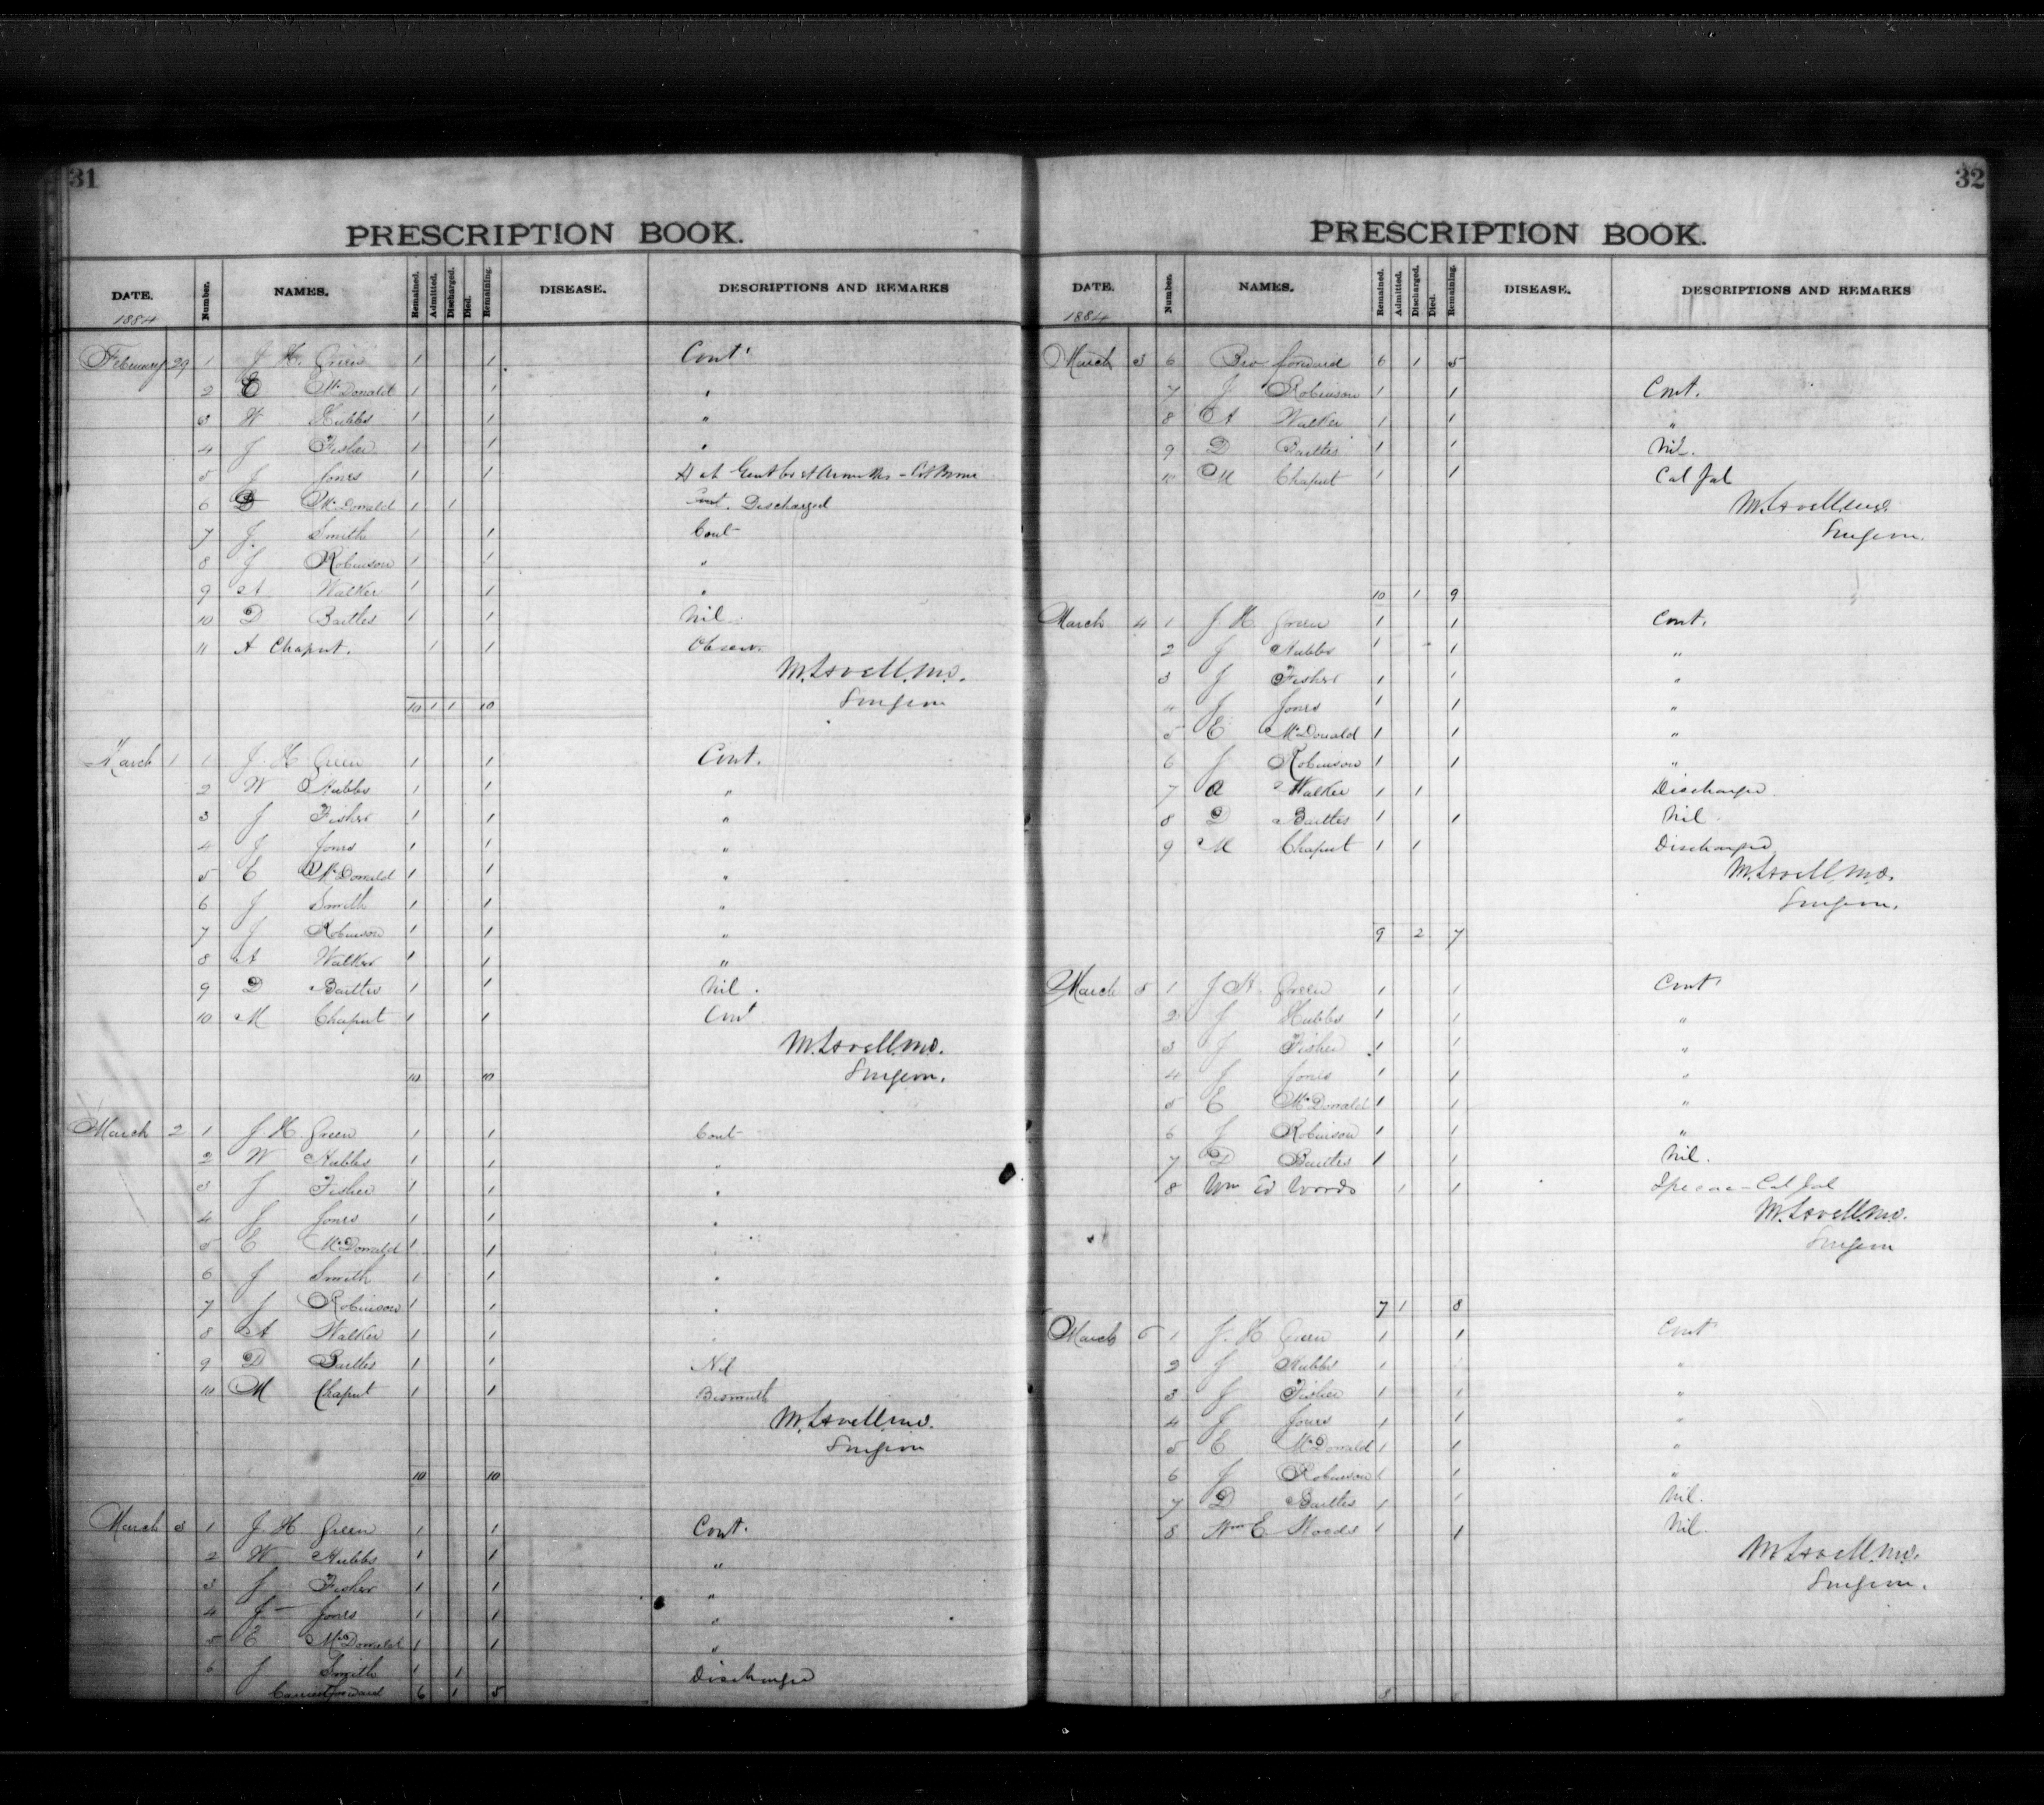 31
PRESCRIPTION BOOK.
DATE. Number. NAMES. Remained. Admitted. Discharged. Died. Remaining. DISEASE. DESCRIPTIONS AND REMARKS
1884
February 29 1 J. H. Green 1 1 Cont.
2 E McDonald 1 1 "
3 W Hubbs 1 1 "
4 J Fisher 1 1 "
5 J Jones 1 1
6 D McDonald 1 1 Cont. Discharged
7 J. Smith 1 1 Cont
8 J Robinson 1 1 "
9 A Walker 1 1 "
10 D Bartles 1 1 Nil
11 A Chaput. 1 1 Observ.
M. Lavell, M.D.
Surgeon
10 1 1 10
March 1 1 J. H. Green 1 1 Cont.
2 W Hubbs 1 1 "
3 J Fisher 1 1 "
4 J Jones 1 1 "
5 E McDonald 1 1 "
6 J Smith 1 1 "
7 J Robinson 1 1 "
8 A Walker 1 1 "
9 D Bartles 1 1 Nil.
10 M Chaput 1 1 Cont
M. Lavell, M.D.
Surgeon.
10 10
March 2 1 J H Green 1 1 Cont
2 W Hubbs 1 1 "
3 J Fisher 1 1 "
4 J Jones 1 1 "
5 E McDonald 1 1 "
6 J Smith 1 1 "
7 J Robinson 1 1 "
8 A Walker 1 1 "
9 D Bartles 1 1 Nil
10 M Chaput 1 1 Bismuth
M. Lavell, M.D.
Surgeon
10 10
March 3 1 J. H Green 1 1 Cont.
2 W Hubbs 1 1 "
3 J Fisher 1 1 "
4 J Jones 1 1 "
5 E McDonald 1 1 "
6 J Smith 1 1 Discharged
Carried forward 6 1 5
32
PRESCRIPTION BOOK.
DATE. Number. NAMES. Remained. Admitted. Discharged. Died. Remaining. DISEASE. DESCRIPTIONS AND REMARKS
1884
March 3 6 Bro. forward 6 1 5
7 J Robinson 1 1 Cont.
8 A Walker 1 1 "
9 D Bartles 1 1 Nil.
10 M Chaput 1 1 Cal Jal
M. Lavell, M.D.
Surgeon.
10 1 9
March 4 1 J. H. Green 1 1 Cont.
2 J Hubbs 1 1 "
3 J Fisher 1 1 "
4 J Jones 1 1 "
5 E McDonald 1 1 "
6 J Robinson 1 1 "
7 A Walker 1 1 Discharged
8 D Bartles 1 1 Nil.
9 M Chaput 1 1 Discharged
M. Lavell, M.D.
Surgeon.
9 2 7
March 5 1 J H. Green 1 1 Cont
2 J Hubbs 1 1 "
3 J Fisher 1 1 "
4 J Jones 1 1 "
5 E McDonald 1 1 "
6 J Robinson 1 1 "
7 D Bartles 1 1 Nil.
8 Wm Ed Woods 1 1 Ipecac - Cal Jal
M. Lavell, M.D.
Surgeon
7 1 8
March 6 1 J. H Green 1 1 Cont
2 J Hubbs 1 1 "
3 J Fisher 1 1 "
4 J Jones 1 1 "
5 E McDonald 1 1 "
6 J Robinson 1 1 "
7 D Bartles 1 1 Nil.
8 Wm E Woods 1 1 Nil.
M. Lavell, M.D.
Surgeon.
8